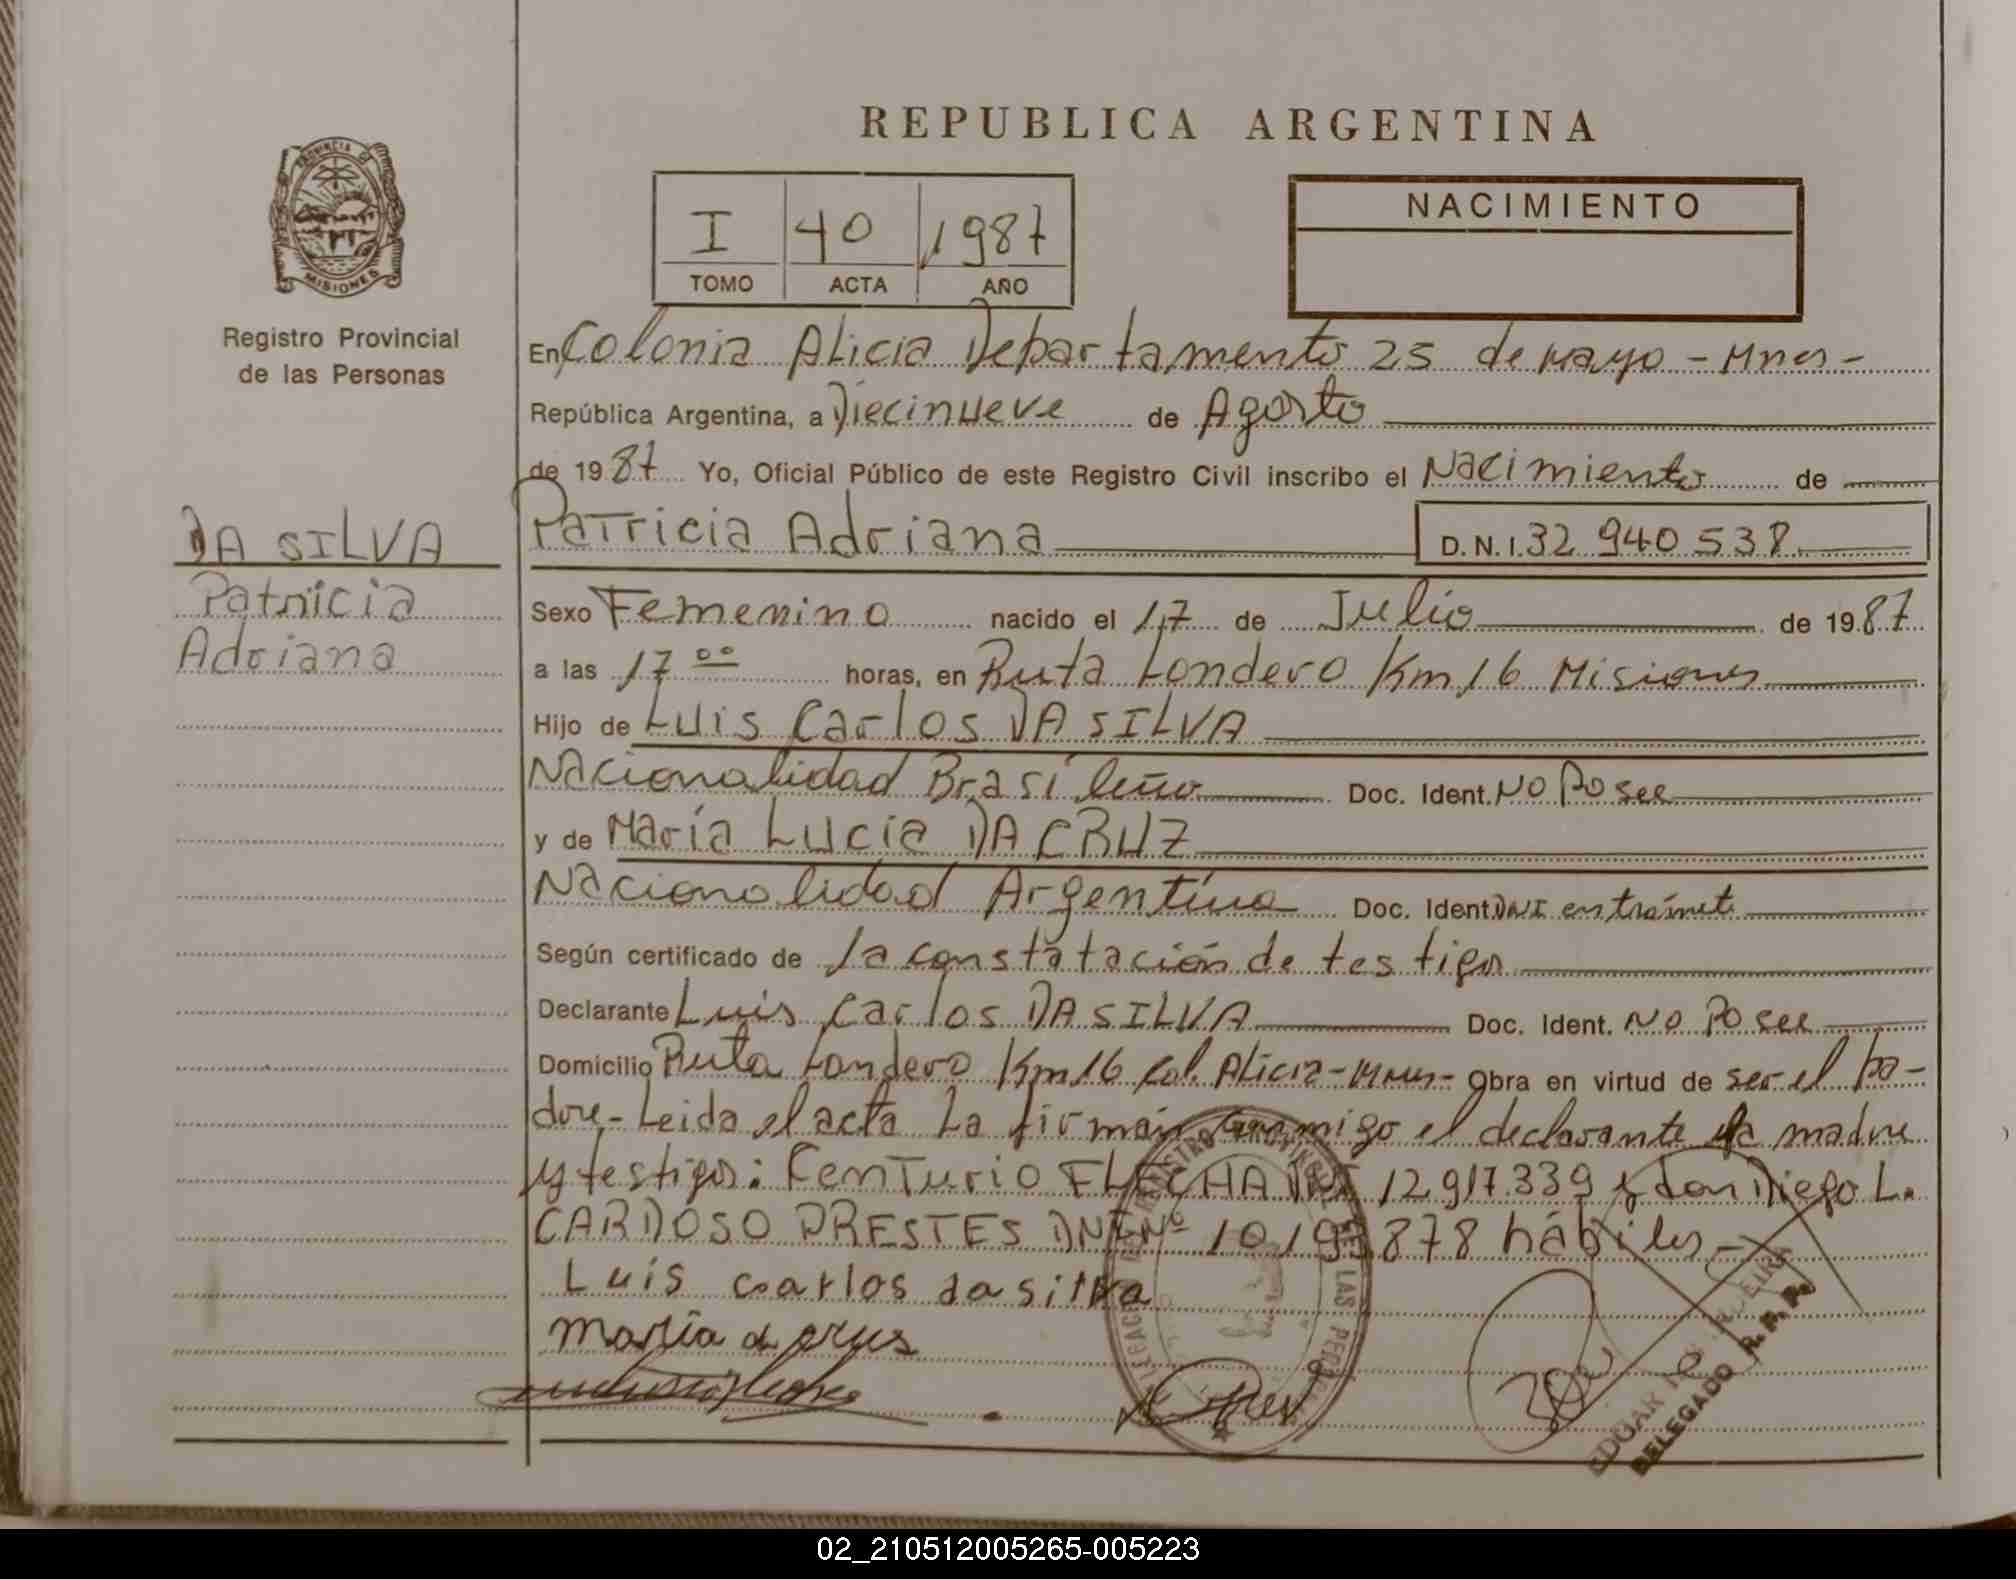 REPUBLICA ARGENTINA
PROVINCIA DE
MISIONES
Registro Provincial
de las Personas
I 40 1987
TOMO ACTA AÑO
NACIMIENTO
En Colonia Alicia Departamento 25 de Mayo - Mnes -
República Argentina, a Diecinueve de Agosto
de 1987 Yo, Oficial Público de este Registro Civil inscribo el Nacimiento de
DA SILVA
Patricia
Adriana
Patricia Adriana D.N.I. 32 940 538
Sexo Femenino nacido el 17 de Julio de 1987
a las 17 00 horas, en Ruta Londero Km 16 Misiones
Hijo de Luis Carlos DA SILVA
Nacionalidad Brasileño Doc. Ident. No Posee
y de María Lucia DA CRUZ
Nacionalidad Argentina Doc. Ident. DNI en trámite
Según certificado de la constatación de testigos
Declarante Luis Carlos DA SILVA Doc. Ident. No Posee
Domicilio Ruta Londero Km 16 Col. Alicia - Mnes - Obra en virtud de ser el pa-
dre - Leida el acta La firman conmigo el declarante la madre
y testigos: Centurio FLECHA DNI 12 917.339 y don Diego L.
CARDOSO PRESTES DNI Nº 10.193.878 hábiles -
Luis carlos da silva
María d crus
DELEGADO R. P. P.
02_210512005265-005223